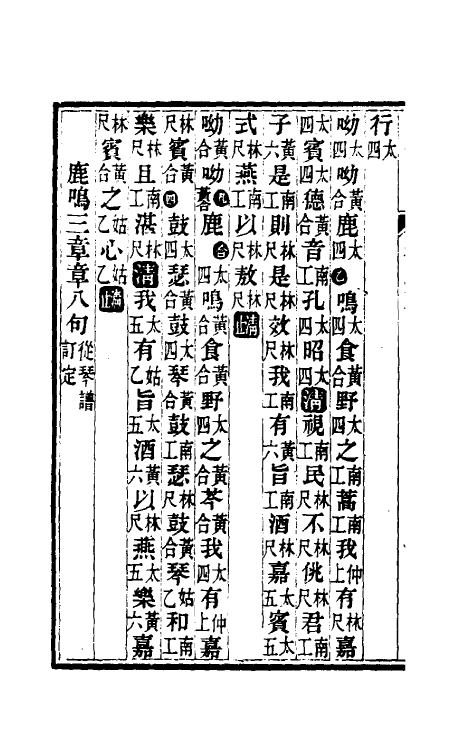 行太四
呦太四呦黃合鹿太四乙鳴太四食黃合野太四之南工蒿南工我仲上有林尺嘉
太四賓太四德黃合音南工孔太四昭太四清視南工民林尺不林尺恌林尺君南工
子黃六是南工則林尺是林尺效林尺我南工有黃六旨南工酒林尺嘉太五賓太五
式林尺燕南工以林尺敖林尺清止
呦黃合呦鹿太四鳴黃合食黃合野太四之黃合芩黃合我太四有仲上嘉
林尺賓黃合四鼓太四瑟黃合鼓太四琴黃合鼓南工瑟林尺鼓黃合琴姑乙和南工
樂林尺且南工湛林尺清我太五有姑乙旨太五酒黃六以林尺燕太五樂黃六嘉
林尺賓黃合之姑乙心姑乙
鹿鳴三章章八句從琴譜訂定